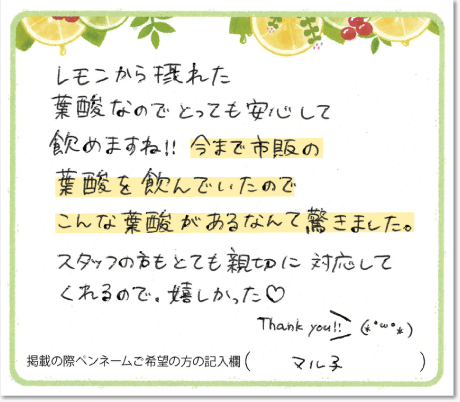 レモンから摂れた
葉酸なのでとっても安心して
飲めますね!! 今まで市販の
葉酸を飲んでいたので
こんな葉酸があるなんて驚きました。
スタッフの方もとても親切に対応して
くれるので。嬉しかった♡
Thank you!! (*°ω°*)
掲載の際ペンネームご希望の方の記入欄( マル子 )